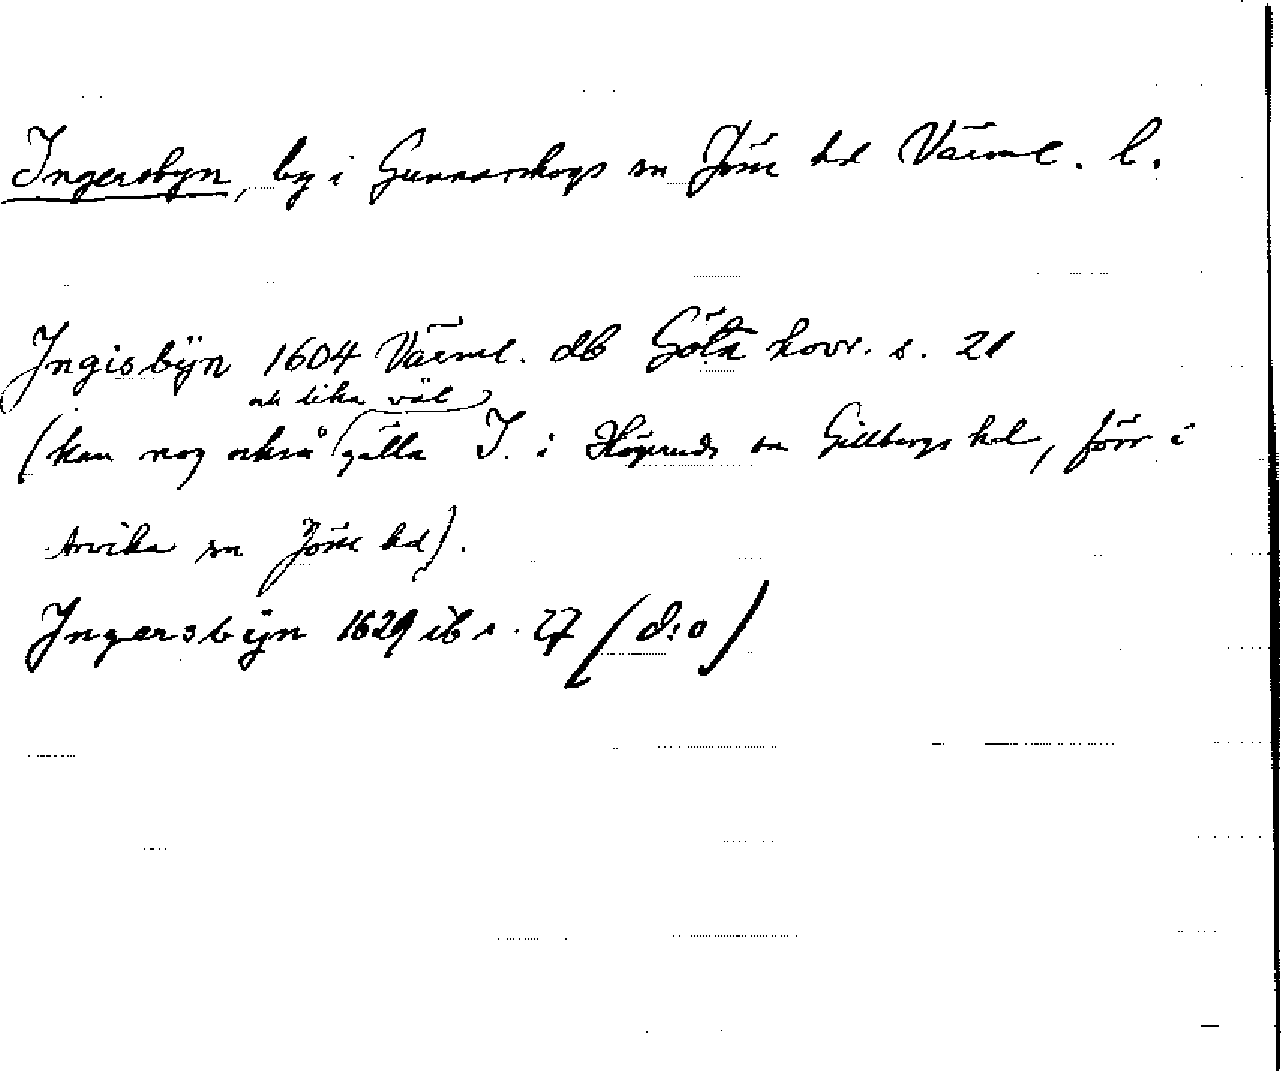 Ingersbyn, by i Gunnarskogs sn Jösse hd Värml. l.
Ingisbÿn 1604 Värml. db Göta hovr. s. 21
och lika väl
(kan nog också gälla I. i Högeruds sn Gillbergs hd, förr i
Arvika sn Jösse hd).
Ingersbÿn 1629 ib s. 27 (d:o)